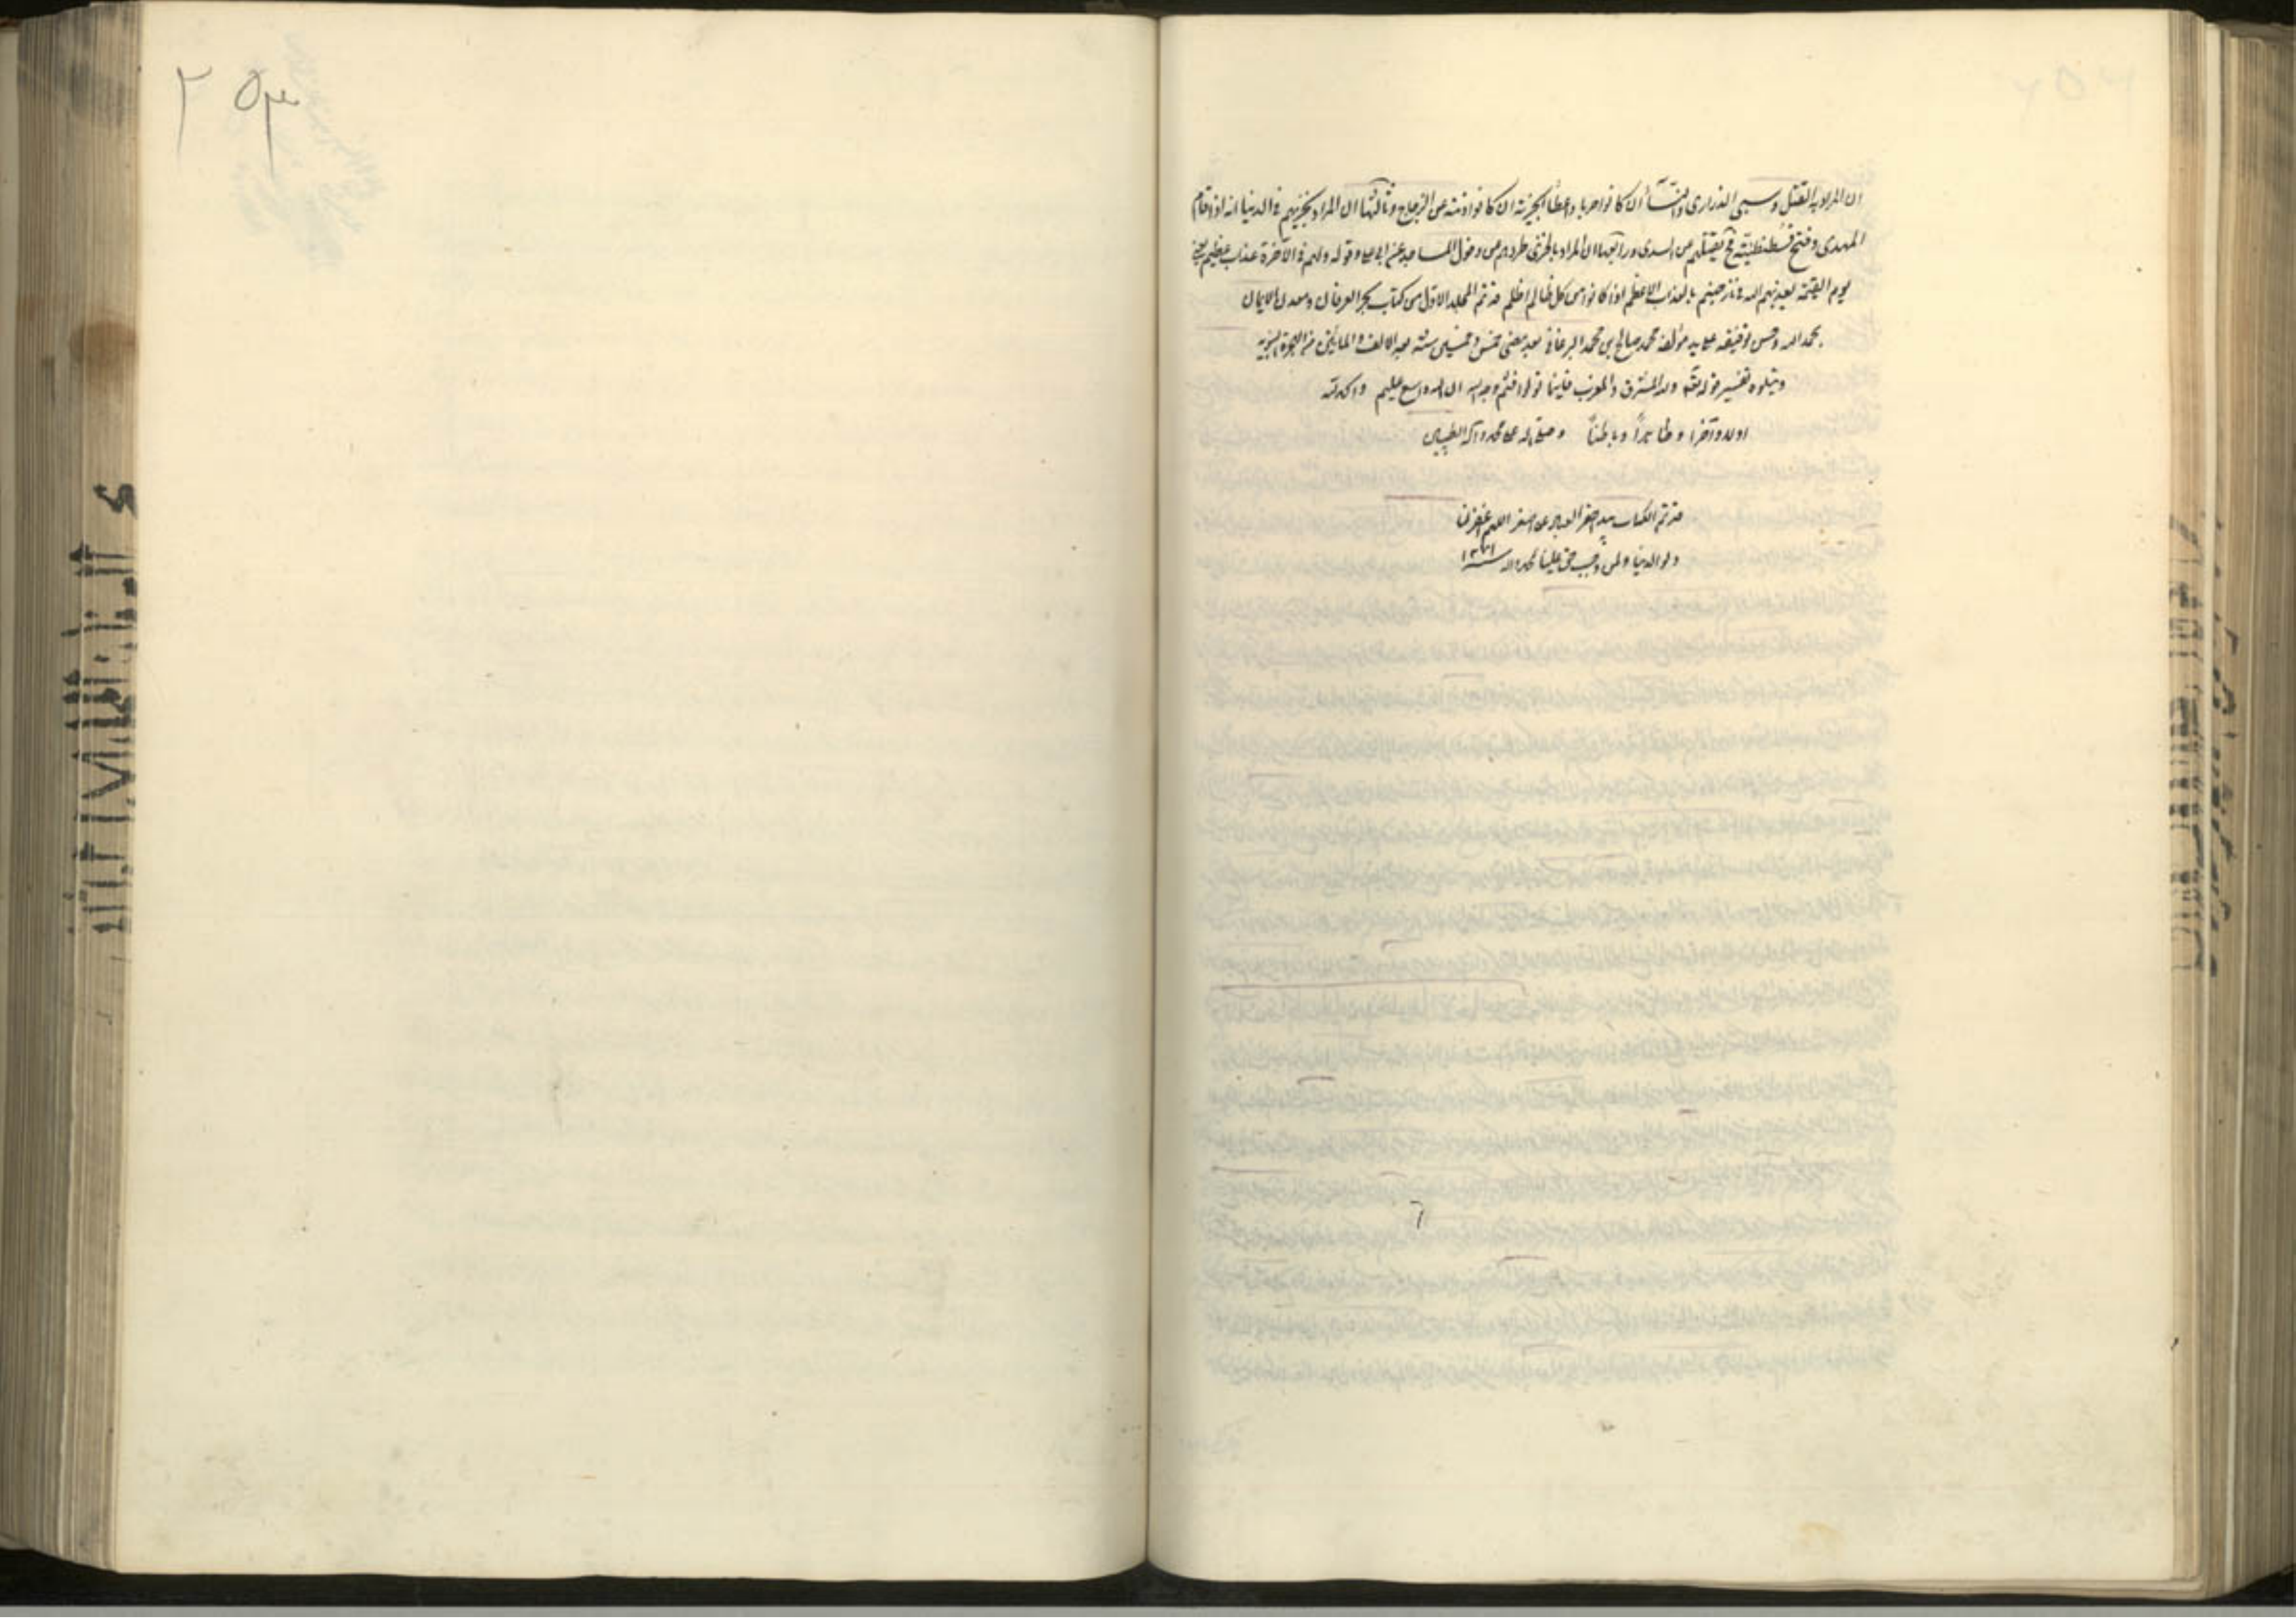 ان المراد به القتل وسبى الذرارى والنسآء ان كانوا حربا واعطاء الجزية ان كانوا ذمة عن الزجاج وثالثها ان المراد بخزيهم فى الدنيا انه اذا قام
المهدى وفتح قسطنطنية فح يقتلهم عن السدى ورابعها ان المراد بالخزى طردهم من دخول المساجد عن ابى على وقوله ولهم فى الآخرة عذاب عظيم يعنى
يوم القيمة يعذبهم الله فى نار جهنم بالعذاب الاعظم اذا كانوا من كل ظالم اظلم قد تم المجلد الاول من كتاب بحر العرفان ومعدن الايمان
بحمد الله وحسن توفيقه على يد مؤلفه محمد صالح بن محمد البرغانى بعد مضى خمس وخمسين سنه بعد الالف والمائتين من الهجرة النبويه
ويتلوه تفسير قوله تعالى ولله المشرق والمغرب فاينما تولوا فثم وجه الله ان الله واسع عليم والحمد لله
اولا وآخرا وظاهراً وباطناً وصلى الله على محمد وآله الطيبين
قد تم الكتاب بيد احقر العباد على اصغر اللهم اغفر لنا
ولوالدينا ولمن وجب حق علينا بمحمد واله سنه
۲۵۳